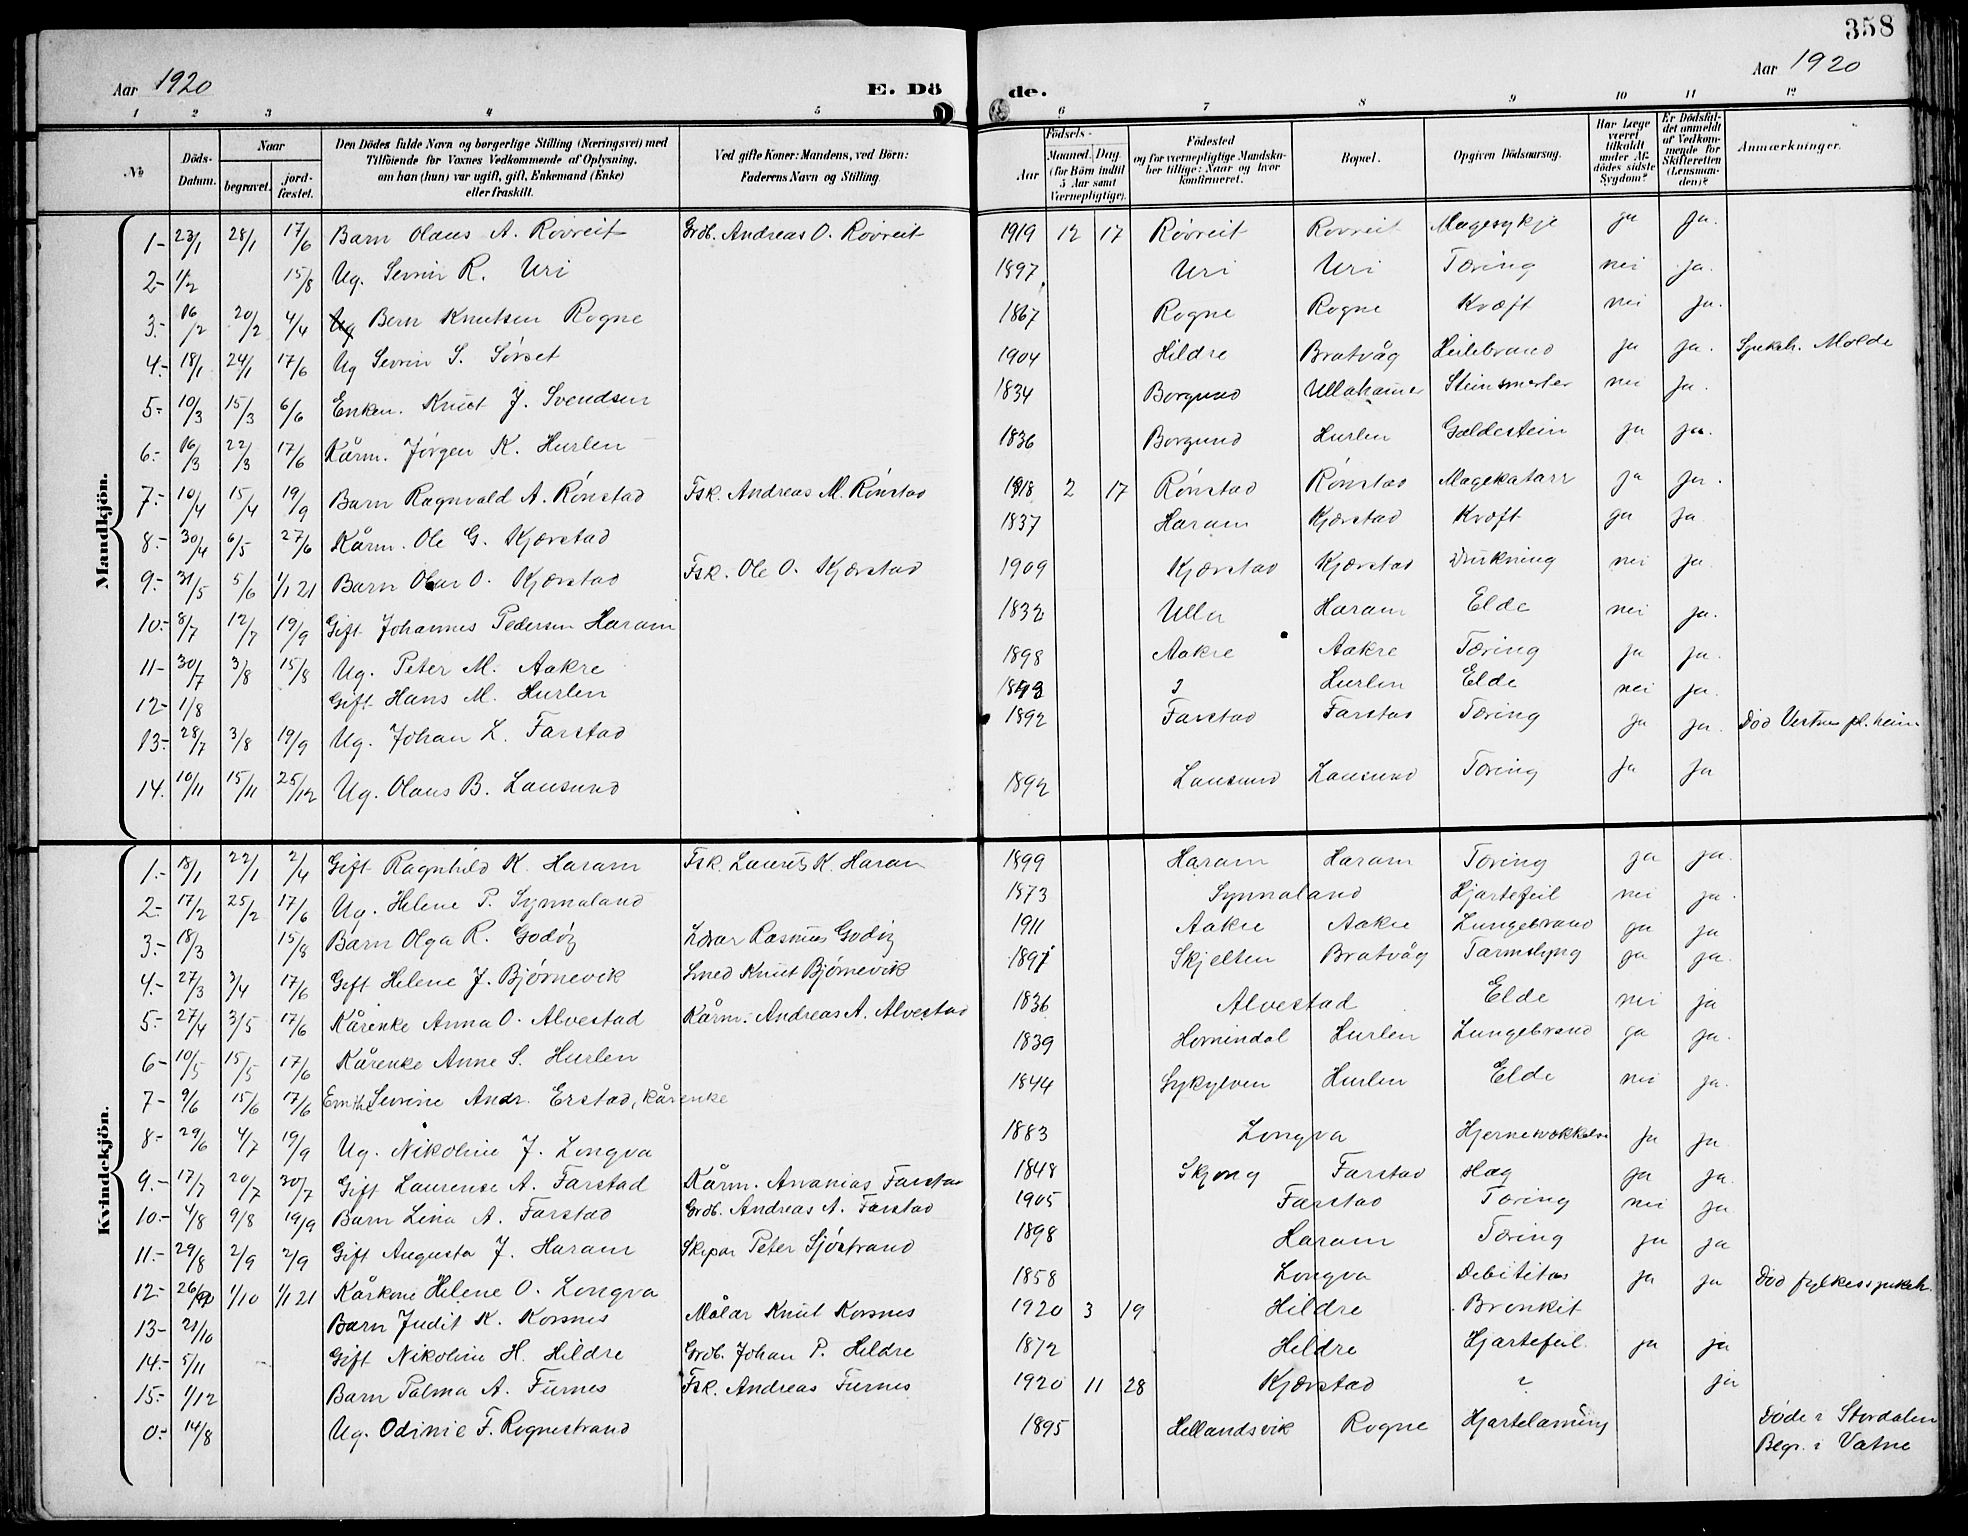 358
Aar 1920 E. Dö de. Aar 1920
1 2 3 4 5 6 7 8 9 10 11 12
No Döds-Datum. Naar begravet. jordfæstet. Den Dödes fulde Navn og borgerlige Stilling (Næringsvei) med Tilföiende for Voxnes Vedkommende af Oplysning, om han (hun) var ugift, gift, Enkemand (Enke) eller fraskilt. Ved gifte Koner: Mandens, ved Börn: Faderens Navn og Stilling. Födsels- Aar Maaned. Dag. (for Börn indtil 5 Aar samt Værnepligtige). Födested og for værnepligtige Mandskaber tillige: Naar og hvor konfirmeret. Bopæl. Opgiven Dödsaarsag. Har Læge været tilkaldt under Afdödes sidste Sygdom? Er Dödsfaldet anmeldt af Vedkommende for Skifteretten (Lensmanden)? Anmærkninger.
Mandkjön.
1- 23/1 28/1 17/6 Barn Olaus A. Rovreit Grdb. Andreas O. Rovreit 1919 12 17 Røvreit Rovreit Magesykje ja ja.
2- 11/2 15/8 Ug. Sevrin R. Uri 1897 Uri Uri Tæring nei ja.
3.- 16/2 20/2 4/4 Ug Bern Knutsen Rogne 1867 Rogne Rogne Kræft nei ja.
4.- 18/1 24/1 17/6 Ug Sevrin S. Sørset 1904 Hildre Bratvåg Heilebrand ja ja. Sjukeh. Molde
5- 10/3 15/3 6/6 Enkem. Knut J. Svendsen 1834 Borgund Ullahamer Steinsmerter nei ja.
6.- 16/3 22/3 17/6 Kårm. Jørgen K. Hurlen 1836 Borgund Hurlen Galdestein ja ja.
7- 10/4 15/4 19/9 Barn Ragnvald A. Rønstad Fsk. Andreas M. Rønstad 1918 2 17 Rønstad Rønstad Magekatarr ja ja.
8.- 30/4 6/5 27/6 Kårm. Ole G. Kjærstad 1837 Haram Kjærstad Kræft ja ja
9.- 31/5 5/6 1/1 21 Barn Olav O. Kjærstad Fsk. Ole O. Kjærstad 1909 Kjærstad Kjærstad Drukning nei ja.
10.- 8/7 12/7 19/9 Gift Johannes Pedersen Haram 1832 Ulla Haram Elde nei ja.
11- 30/7 3/8 15/8 Ug. Peter M. Aakre 1898 Aakre Aakre Tæring ja ja.
12- 1/8 Gift Hans M. Hurlen Hurlen Elde nei ja.
13.- 28/7 3/8 19/9 Ug. Johan L. Farstad 1892 Farstad Farstad Tæring ja ja. Død Vestnes pl. heim
14. 10/11 15/11 25/12 Ug. Olaus B. Lausund 1892 Lausund Lausund Tæring ja ja
Kvindekjön.
1.- 18/1 22/1 2/4 Gift Ragnhild K. Haram Fsk. Laurits K. Haram 1899 Haram Haram Tæring ja ja.
2.- 17/2 25/2 17/6 Ug. Helene P. Synnaland 1873 Synnaland Hjartefeil nei ja.
3.- 18/3 15/8 Barn Olga R. Godøy Lærar Rasmus Godøy 1911 Aakre Aakre Lungebrand ja ja
4.- 27/3 3/4 17/6 Gift Helene J. Bjørnevik Smed Knut Bjørnevik 1891 Skjelten Bratvåg Tarmslyng ja ja.
5.- 27/4 3/5 17/6 Kårenke Anna O. Alvestad Kårm. Andreas A. Alvestad 1836 Alvestad Elde nei ja
6- 10/5 15/5 17/6 Kårenke Anne S. Hurlen 1839 Hornindal Hurlen Lungebrand ja ja.
7- 9/6 15/6 17/6 Sevrine Andr. Erstad, kårenke 1844 Sykylven Hurlen Elde nei ja.
8- 29/6 4/7 19/9 Ug. Nikoline J. Longva 1883 Longva ja ja.
9.- 17/7 20/7 30/7 Gift Laurense A. Farstad Kårm. Ananias Farstad 1848 Skjong Farstad Slag ja ja.
10.- 4/8 9/8 19/9 Barn Lina A. Farstad Grdb. Andreas A. Farstad 1905 Farstad Tæring nei ja.
11.- 29/8 2/9 2/9 Gift Augusta J. Haram Skipar Peter Sjøstrand 1898 Haram Tæring ja ja
12- 26/9 1/10 1/1 21 Kårkone Helene O. Longva 1858 Longva Debilitas ja ja Død fylkessjukeh.
13- 21/10 Barn Judit K. Korsnes Målar Knut Korsnes 1920 3 19 Hildre Bronkit
14.- 5/11 Gift Nikoline H. Hildre Grdb. Johan P. Hildre 1872 Hildre Hjartefeil ja ja
15.- 1/12 Barn Palma A. Furnes Fsk. Andreas Furnes 1920 11 28 Kjærstad ? ja
0.- 14/8 Ug. Odinie F. Rognestrand 1895 Hellandsvik Rogne Hjartelamming Døde i Stordalen
Begr. i Vatne